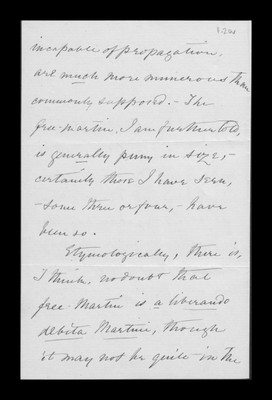 incapable of propagation,
are much more numerous than
commonly supposed. - The
free-martin, I am further told,
is generally puny in size; -
certainly those I have seen,
- some three or four, - have
been so.
Etymologically, there is,
I think, no doubt that
free-Martin is a liberando
debita Martini, though
it may not be quite in the